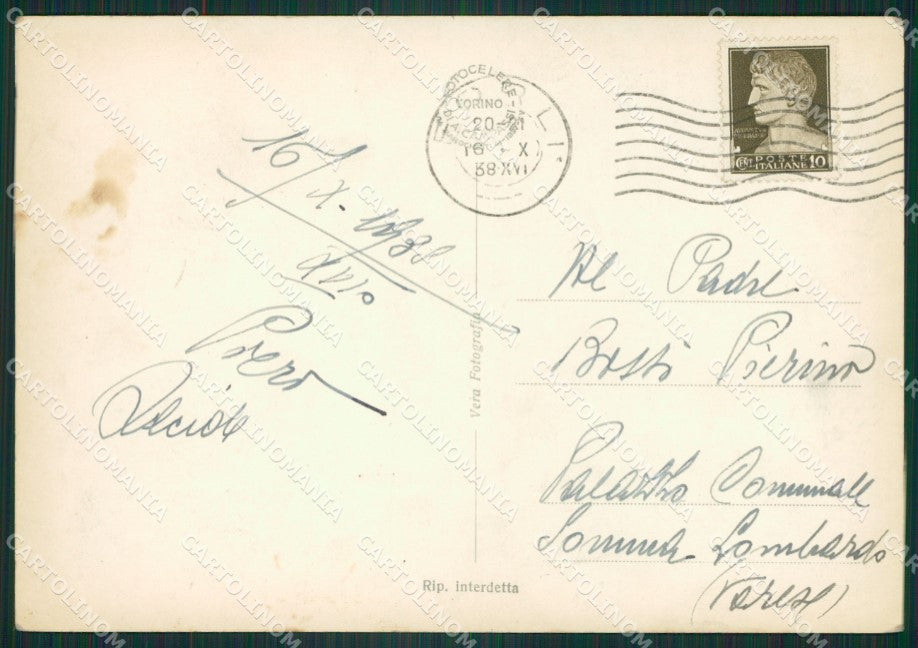 16/X. 1938
XVI°
Piero
FOTOCELERE
TORINO
20-21
16 X
38·XVI
POSTE
ITALIANE
CENT 10
Al Padre
Bossi Pierino
Palazzo Comunale
Somma Lombardo
(Varese)
Vera Fotografia
Rip. interdetta
CARTOLINOMANIA